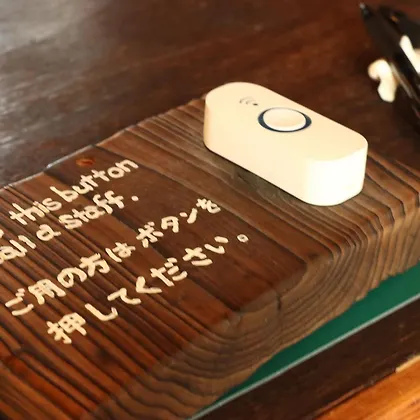 this button
a staff.
ご用の方はボタンを
押してください。